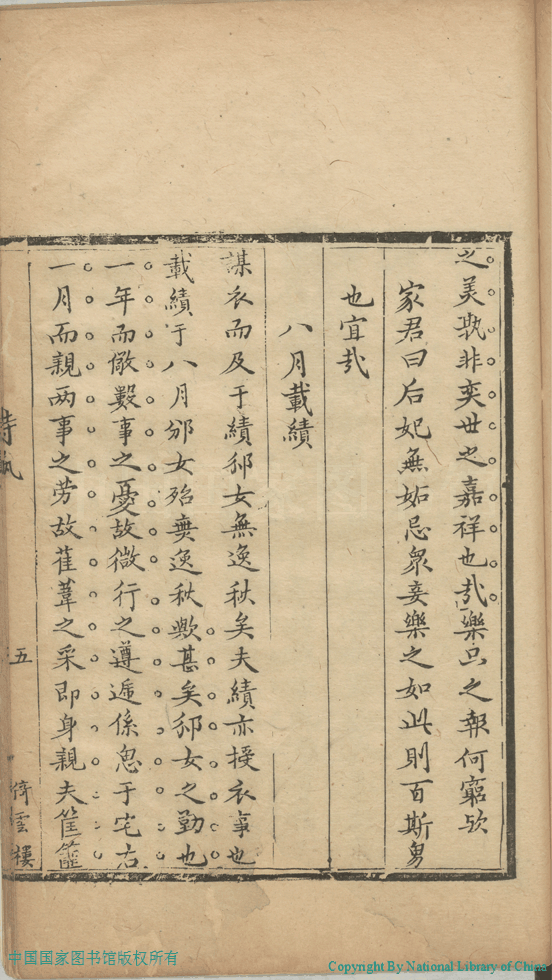 之美孰非奕世之嘉祥也哉樂只之報何窮欤
家君曰后妃無妬忌衆妾樂之如此則百斯男
也宜哉
八月載績
謀衣而及于績邠女無逸秋矣夫績亦授衣事也
載績于八月邠女殆無逸秋歟甚矣邠女之勤也
一年而儆數事之憂故微行之遵遞係思于宅右
一月而親两事之劳故萑葦之采即身親夫筐
五
倚雲樓
中国国家图书馆版权所有
Copyright By National Library of China